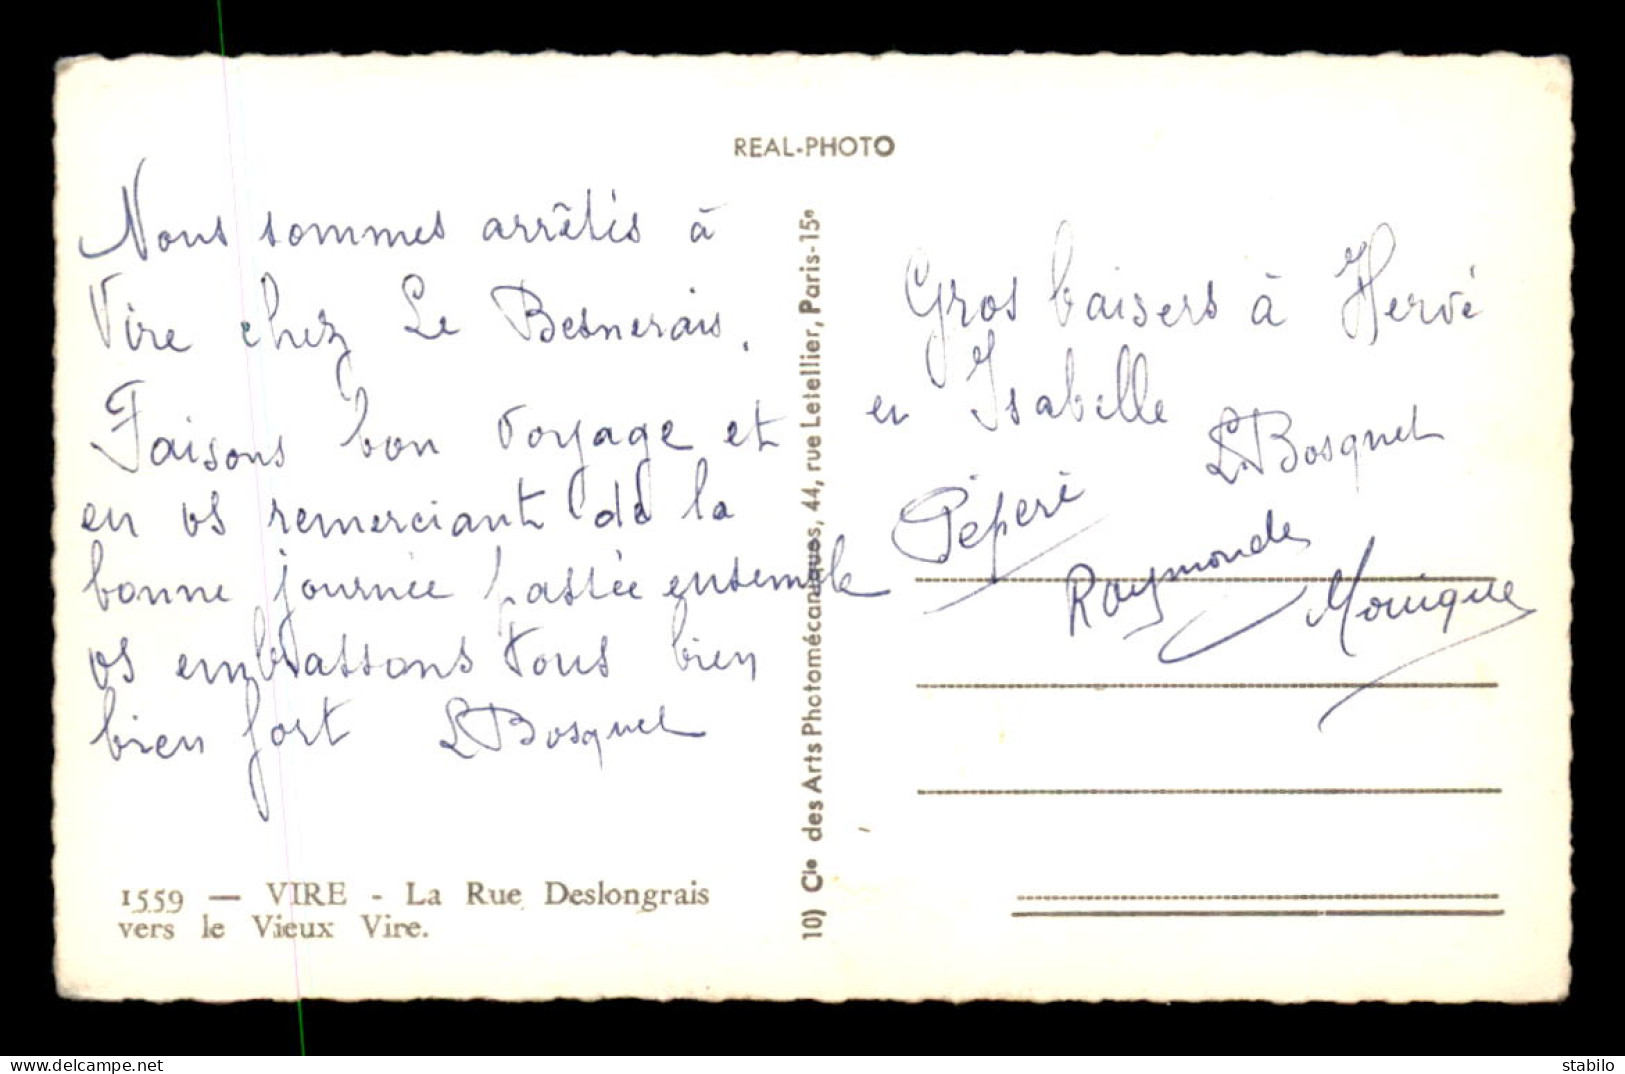 REAL-PHOTO
Nous sommes arrêtés à
Vire chez Le Besnerais.
Faisons bon voyage et
en vs remerciant de la
bonne journée passée ensemble
vs embrassons tous bien
bien fort L Bosquet
1559 — VIRE - La Rue Deslongrais
vers le Vieux Vire.
10) Cie des Arts Photomécaniques, 44, rue Letellier, Paris-15e
Gros baisers à Hervé
en Isabelle
L Bosquet
Péperé
Raymonde
Monique
delcampe.net
stabilo